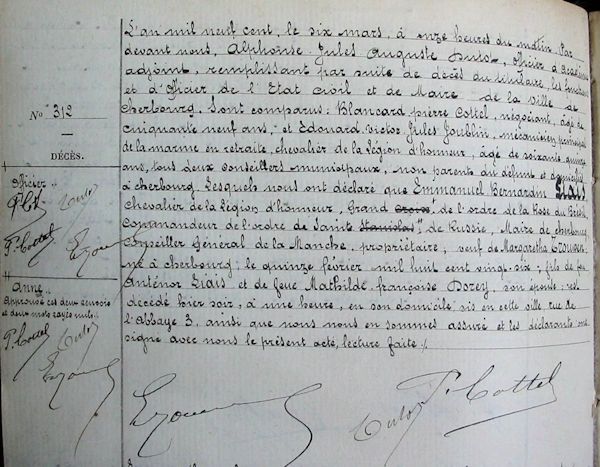 L'an mil neuf cent, le six mars, à onze heures du matin. Par
devant nous, Alphonse Jules Auguste officier d'Académie
adjoint, remplissant par suite de décès du titulaire, les fonctions
et d'Officier de l'Etat civil et de Maire de la ville de
Cherbourg. Sont comparus: Blancard pierre Cottel, négociant, âgé de
cinquante neuf ans, et Edouard Victor Jules Joublin, mécanicien principal
de la marine en retraite, chevalier de la Légion d'honneur, âgé de soixante quinze
ans, tous deux conseillers municipaux, non parents du défunt et domiciliés
à cherbourg. Lesquels nous ont déclaré que Emmanuel Bernardin Liais
Chevalier de la Légion d'honneur, Grand Croix de l'ordre de la Rose du Brésil
Commandeur de l'ordre de Sainte Stanislas de Russie, Maire de cherbourg
Conseiller Général de la Manche, propriétaire, veuf de Margaretha
né à cherbourg le quinze février mil huit cent vingt-six; fils de feu
Anténor Liais et de feue Mathilde françoise Dorey, son épouse; est
décédé hier soir, à une heure, en son domicile sis en cette ville rue de
l'Abbaye 3, ainsi que nous nous en sommes assuré et les déclarants ont
signé avec nous le présent acte, lecture faite ./.
No 312
DÉCÈS.
officier
P. Cottel
Anny
Approuvé
et deux mots rayés nuls
P. Cottel
P. Cottel